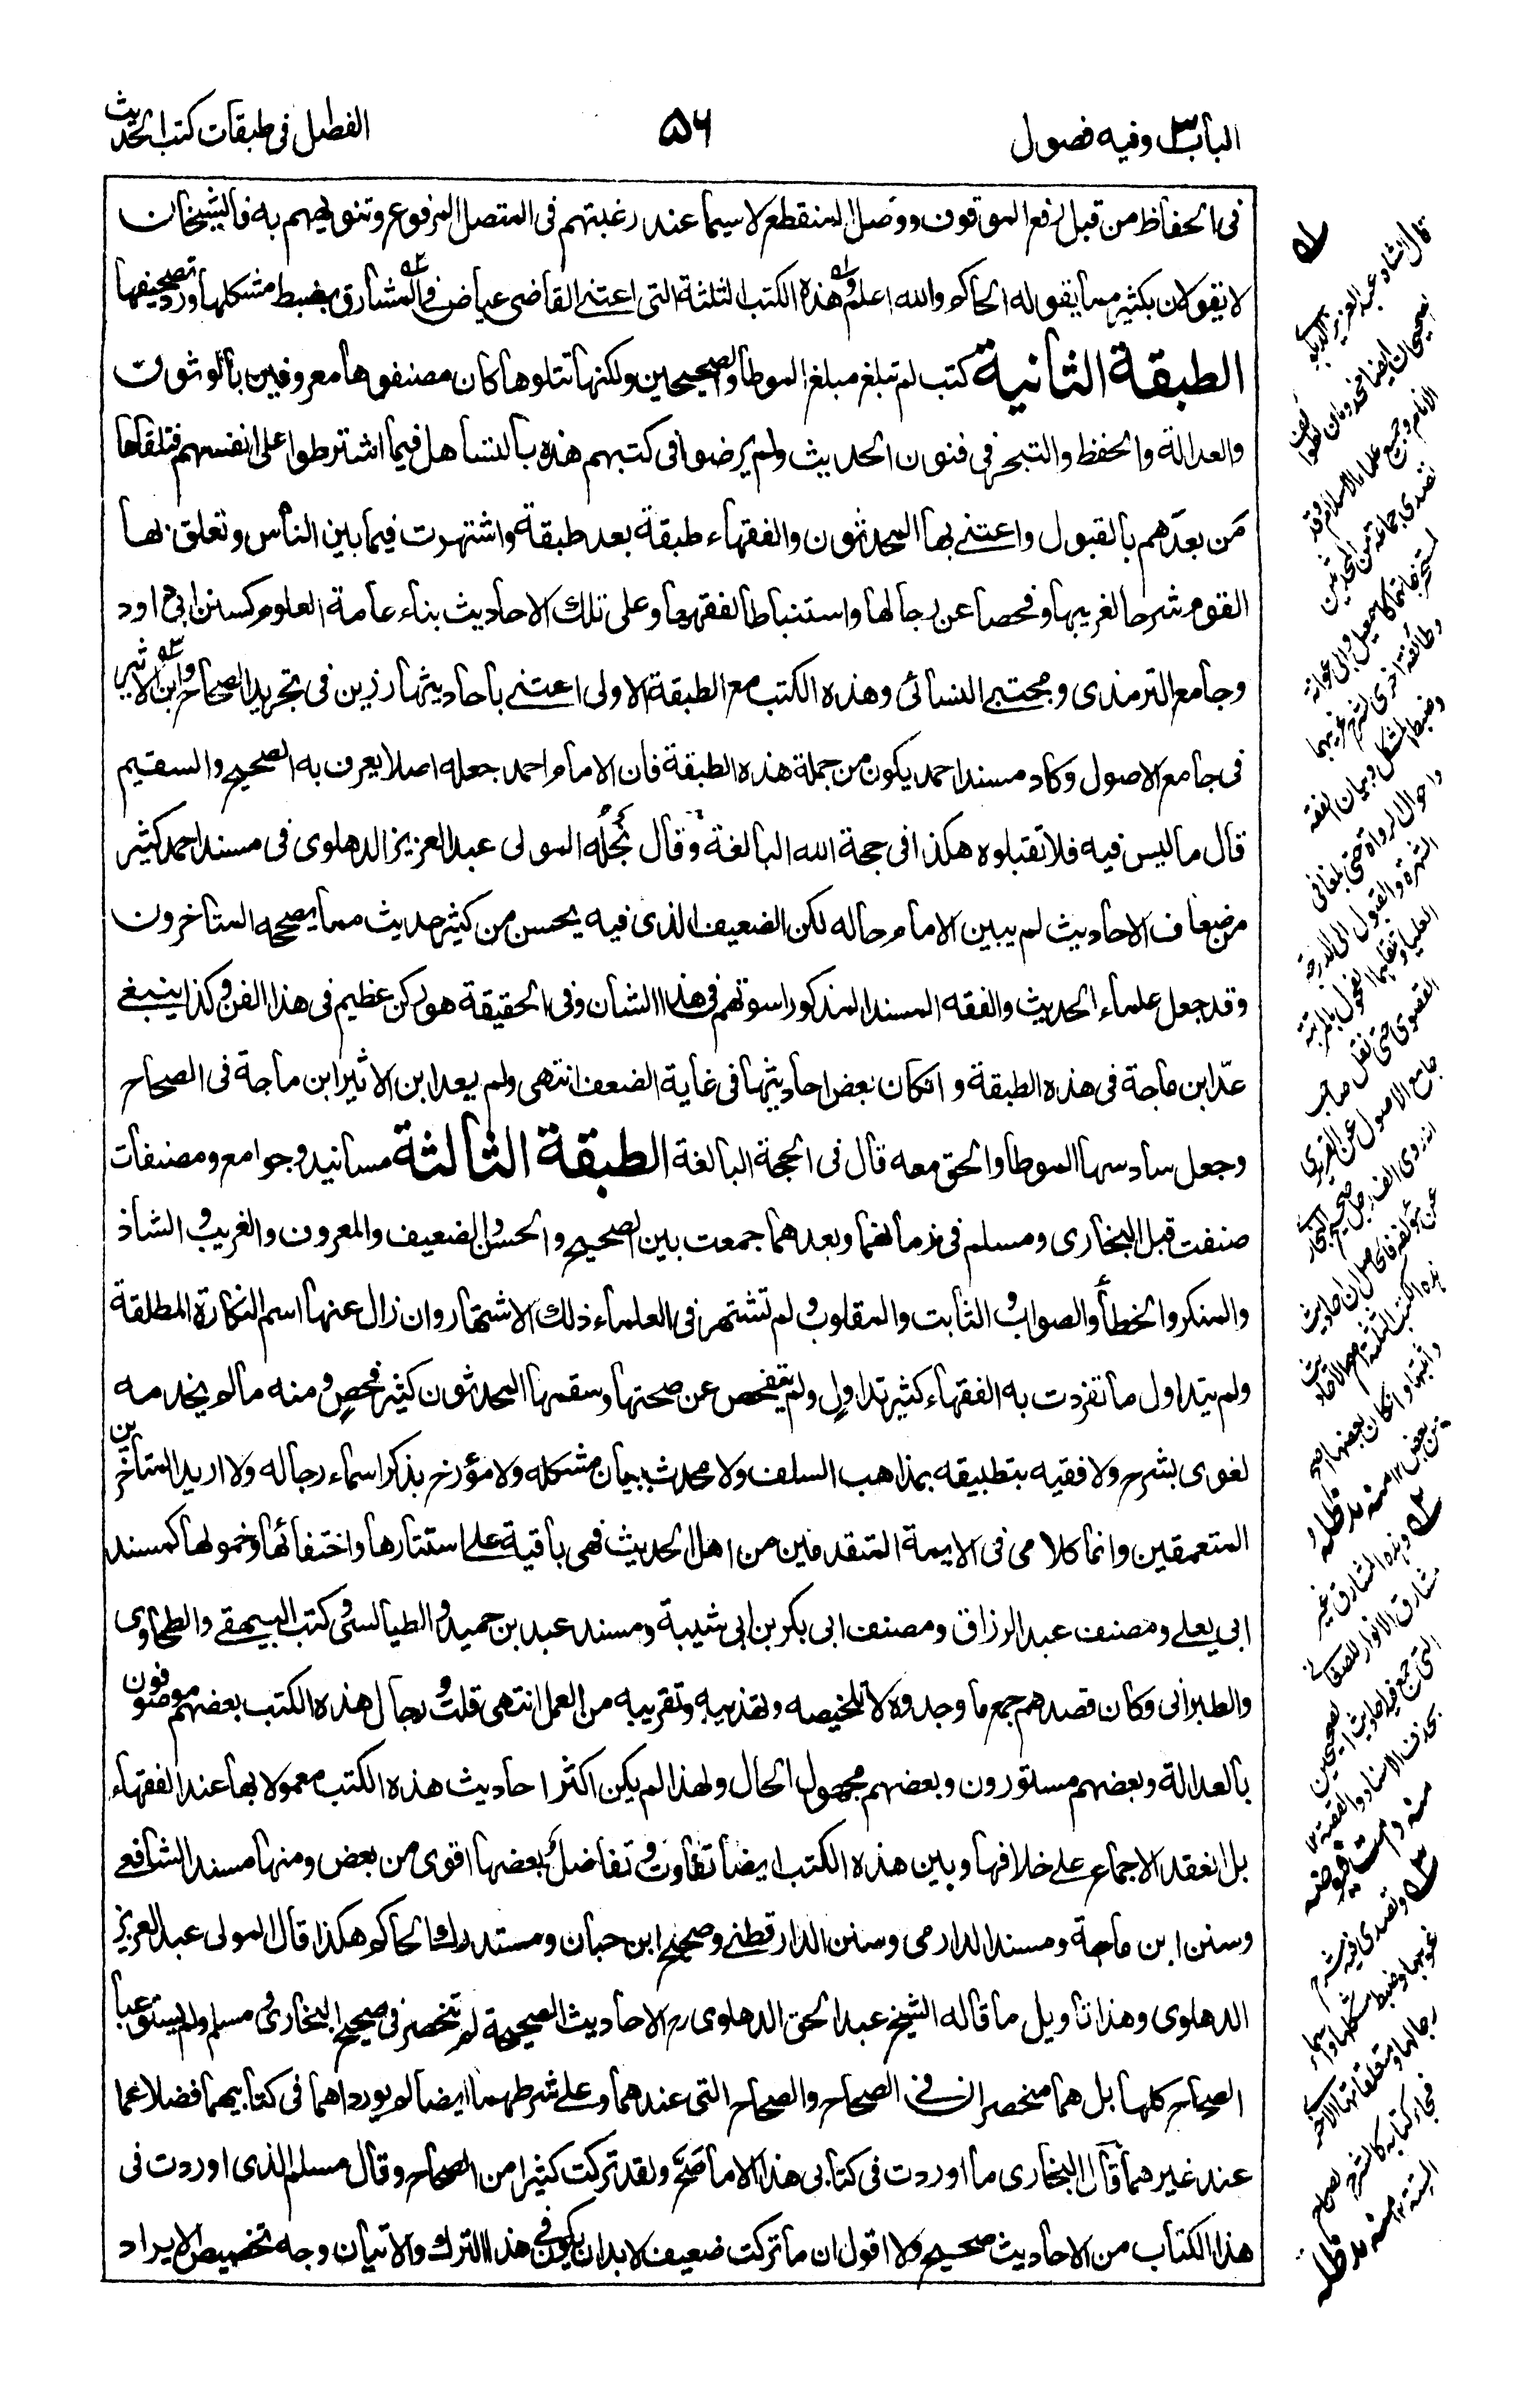 الباب٣ وفيه فصول
۵۶
الفصل فى طبقات كتب الحديث
فى الحفاظ من قبل لرفع الموقوف ووصل المنقطع لا سيما عند رغبتهم فى المتصل المرفوع وتنويههم به فالشيخان
لا يقولان بكثير مما يقوله الحاكم والله اعلم وهذه الكتب الثلثة التى اعتنى القاضى عياض فى المشارق بضبط مشكلها ورد تصحيفها
الطبقة الثانية كتب لم تبلغ مبلغ الموطا والصحيحين ولكنها تتلوها كان مصنفوها معروفين بالوثوق
والعدالة والحفظ والتبحر فى فنون الحديث ولم يرضوا فى كتبهم هذه بالتساهل فيما اشترطوا على انفسهم فتلقاها
من بعدهم بالقبول واعتنى بها المحدثون والفقهاء طبقة بعد طبقة واشتهرت فيما بين الناس وتعلق بها
القوم شرحا لغريبها وفحصا عن رجالها واستنباطا لفقهها وعلى تلك الاحاديث بناء عامة العلوم كسنن ابى داود
وجامع الترمذى ومجتبى النسائى وهذه الكتب مع الطبقة الاولى اعتنى باحاديثها رزين فى تجريد الصحاح وابن الاثير
فى جامع الاصول وكاد مسند احمد يكون من جملة هذه الطبقة فان الامام احمد جعله اصلا يعرف به الصحيح والسقيم
قال ما ليس فيه فلا تقبلوه هكذا فى حجة الله البالغة وقال نجله المولى عبد العزيز الدهلوى فى مسند احمد كثير
من ضعاف الاحاديث لم يبين الامام حاله لكن الضعيف الذى فيه يحسن من كثير حديث مما يصححه المتاخرون
وقد جعل علماء الحديث والفقه المسند المذكور اسوتهم فى هذا الشان وفى الحقيقة هو ركن عظيم فى هذا الفن وكذا ينبغى
عد ابن ماجة فى هذه الطبقة وان كان بعض احاديثها فى غاية الضعف انتهى ولم يعد ابن الاثير ابن ماجة فى الصحاح
وجعل سادسها الموطا والحق معه قال فى الحجة البالغة الطبقة الثالثة مسانيد وجوامع ومصنفات
صنفت قبل البخارى ومسلم فى زمانهما وبعدهما جمعت بين الصحيح والحسن والضعيف والمعروف والغريب والشاذ
والمنكر والخطأ والصواب والثابت والمقلوب ولم تشتهر فى العلماء ذلك الاشتهار وان زال عنها اسم النكارة المطلقة
ولم يتداول ما تفردت به الفقهاء كثير تداول ولم يتفحص عن صحتها وسقمها المحدثون كثير فحص ومنه ما لم يخدمه
لغوى بشرح ولا فقيه بتطبيقه بمذاهب السلف ولا محدث ببيان مشكله ولا مؤرخ بذكر اسماء رجاله ولا اريد المتأخرين
المتعمقين وانما كلامى فى الايمة المتقدمين من اهل الحديث فهى باقية على استتارها واختفائها وخمولها كمسند
ابى يعلى ومصنف عبد الرزاق ومصنف ابى بكر بن ابى شيبة ومسند عبد بن حميد والطيالسى وكتب البيهقى والطحاوى
والطبرانى وكان قصدهم جمع ما وجدوه لا تلخيصه وتهذيبه وتقريبه من العمل انتهى قلت ورجال هذه الكتب بعضهم موصوفون
بالعدالة وبعضهم مستورون وبعضهم مجهول الحال ولهذا لم يكن اكثر احاديث هذه الكتب معمولا بها عند الفقهاء
بل انعقد الاجماع على خلافها وبين هذه الكتب ايضا تفاوت وتفاضل بعضها اقوى من بعض ومنها مسند الشافعى
وسنن ابن ماجة ومسند الدارمى وسنن الدارقطنى وصحيح ابن حبان ومستدرك الحاكم هكذا قال المولى عبد العزيز
الدهلوى وهذا تاويل ما قاله الشيخ عبد الحق الدهلوى رح الاحاديث الصحيحة لم تنحصر فى صحيح البخارى ومسلم ولم يستوعبا
الصحاح كلها بل هما منحصران فى الصحاح والصحاح التى عندهما وعلى شرطهما ايضا لم يورداهما فى كتابيهما فضلا عما
عند غيرهما قال البخارى ما اوردت فى كتابى هذا الا ما صح ولقد تركت كثيرا من الصحاح وقال مسلم الذى اوردت فى
هذا الكتاب من الاحاديث صحيح ولا اقول ان ما تركت ضعيف لا بد ان يكون فى هذا الترك والاتيان وجه تخصيص الايراد
قال الشاه عبد العزيز
الانام وجميع علماء الاسلام وقد
تصدى جماعة من المحدثين
وطائفة اخرى لشرح غريبهما
وضبط المشكل وبيان الفقه
واحوال الرواة حتى بلغا فى
الشهرة والقبول الى الدرجة
القصوى حتى نقل صاحب
جامع الاصول عن الفربرى
هذه الكتب الثلثة اصح الاحاديث
وان كان بعضها اصح
من بعض ١٢ منه مد ظله
مشارق الانوار للصغانى
التى جمع فيه احاديث الصحيحين
بحذف الاسناد والقصة ١٢
منه دامت فيوضه
وتصدى فيه لشرح
غريبها وضبط مشكلها واسماء
البتة ١٢ منه مد ظله